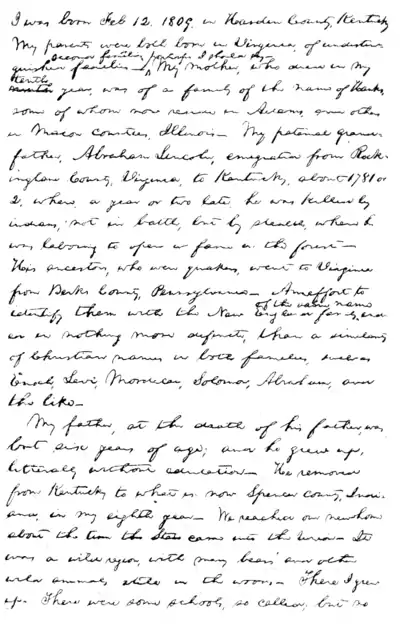 I was born Feb 12. 1809. in Hardin County, Kentucky
My parents were both born in Virginia, of undistin-
second families, perhaps I should say
guished families — My mother, who died in my
tenth
year, was of a family of the name of Hanks,
some of whom now reside in Adams, and others
in Macon counties, Illinois — My paternal grand-
father, Abraham Lincoln, emigrated from Rock-
ingham County, Virginia, to Kentucky, about 1781 or
2, where, a year or two later, he was killed by
indians, not in battle, but by stealth, when he
was laboring to open a farm in the forest —
His ancestors, who were quakers, went to Virginia
from Berks County, Pennsylvania — An effort to
of the same name
identify them with the New England family, end-
ed in nothing more definite, than a similarity
of Christian names in both families, such as
Enoch, Levi, Mordecai, Solomon, Abraham, and
the like —
My father, at the death of his father, was
but six years of age; and he grew up,
litterally without education — He removed
from Kentucky to what is now Spencer county, Indi-
ana, in my eighth year — We reached our new home
about the time the State came into the Union — It
was a wild region, with many bears and other
wild animals, still in the woods — There I grew
up — There were some schools, so called; but no